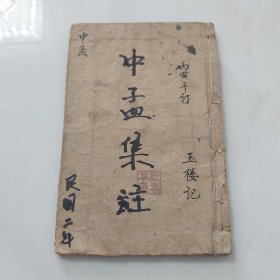 丙寅年訂
玉樓記
中孟集註
中孟
民国二年